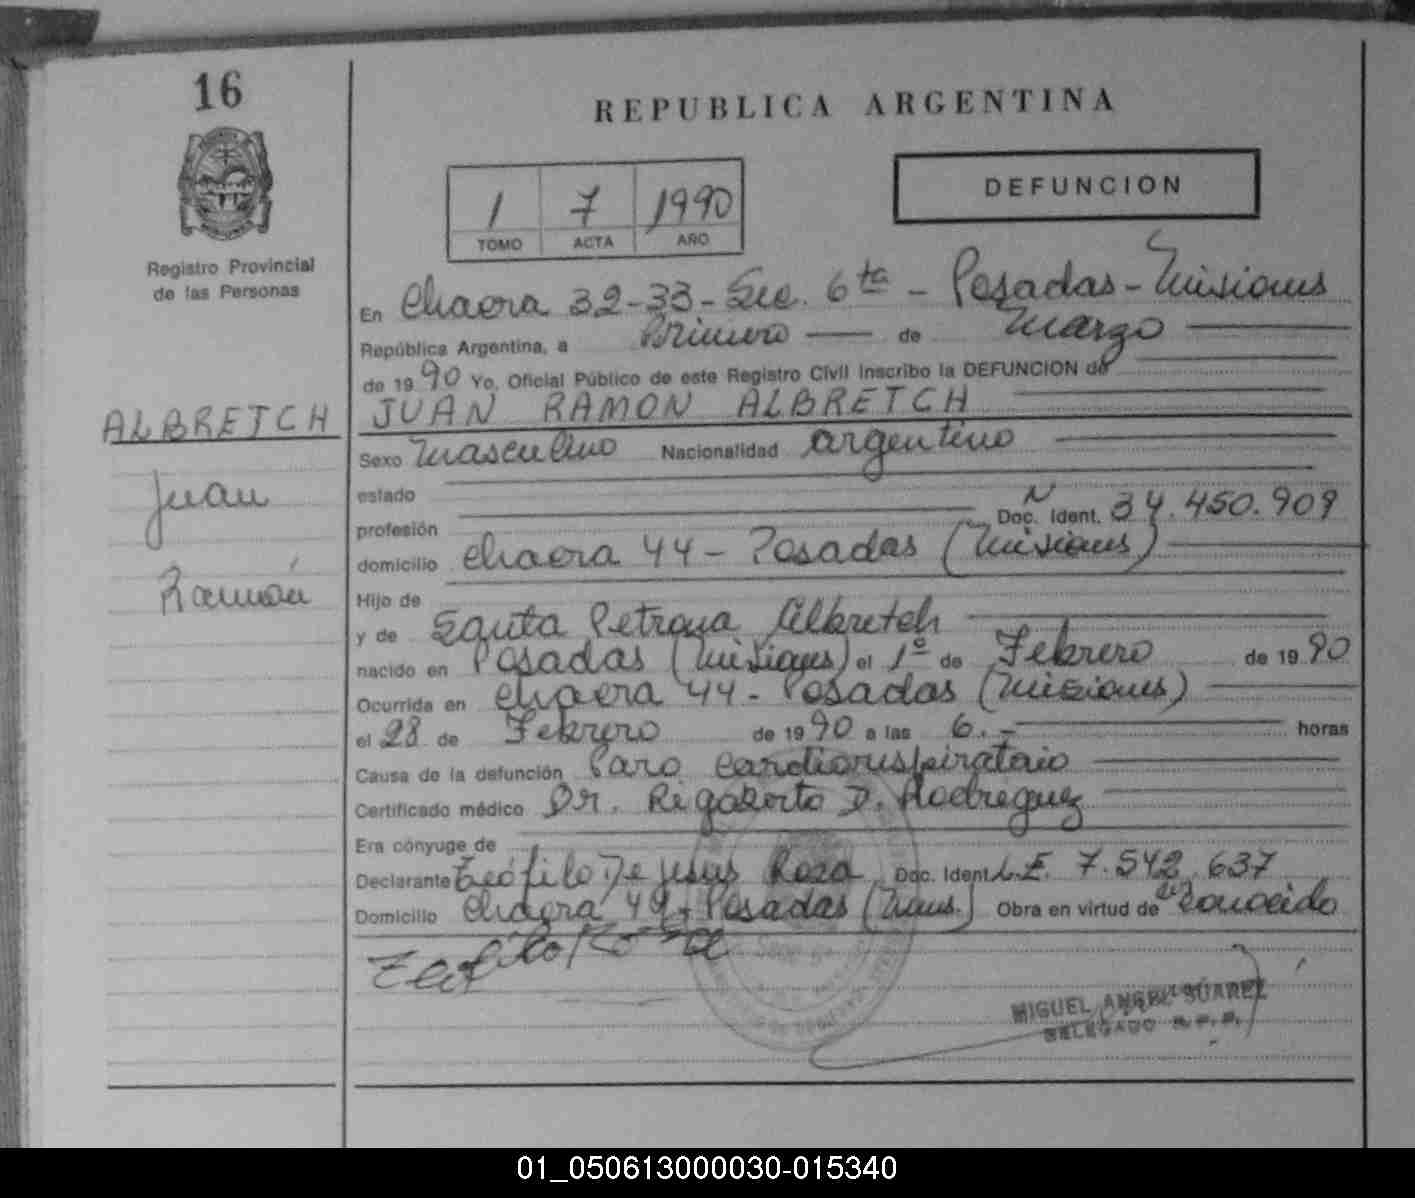 16
REPUBLICA ARGENTINA
DEFUNCION
1 7 1990
TOMO ACTA AÑO
Registro Provincial
de las Personas
En Chacra 32-33- Sec. 6ta - Posadas - Misiones
República Argentina, a Primero de Marzo
de 1990 Yo, Oficial Público de este Registro Civil inscribo la DEFUNCION de
ALBRETCH
JUAN RAMON ALBRETCH
Juan
Ramón
Sexo Masculino Nacionalidad argentino
estado
profesión Doc. Ident. N 34.450.909
domicilio Chacra 44 - Posadas (Misiones)
Hijo de
y de Santa Petrona Albretch
nacido en Posadas (Misiones) el 1º de Febrero de 1990
Ocurrida en Chacra 44 - Posadas (Misiones)
el 28 de Febrero de 1990 a las 6.- horas
Causa de la defunción Paro Cardiorrespiratorio
Certificado médico Dr. Rigoberto D. Rodreguez
Era cónyuge de
Declarante Teófilo De Jesus Roza Doc. Ident. L.E. 7.542.637
Domicilio Chacra 49 - Posadas (Mnes.) Obra en virtud de ser conocido
MIGUEL ANGEL SUAREZ
DELEGADO R.P.P.
01_050613000030-015340